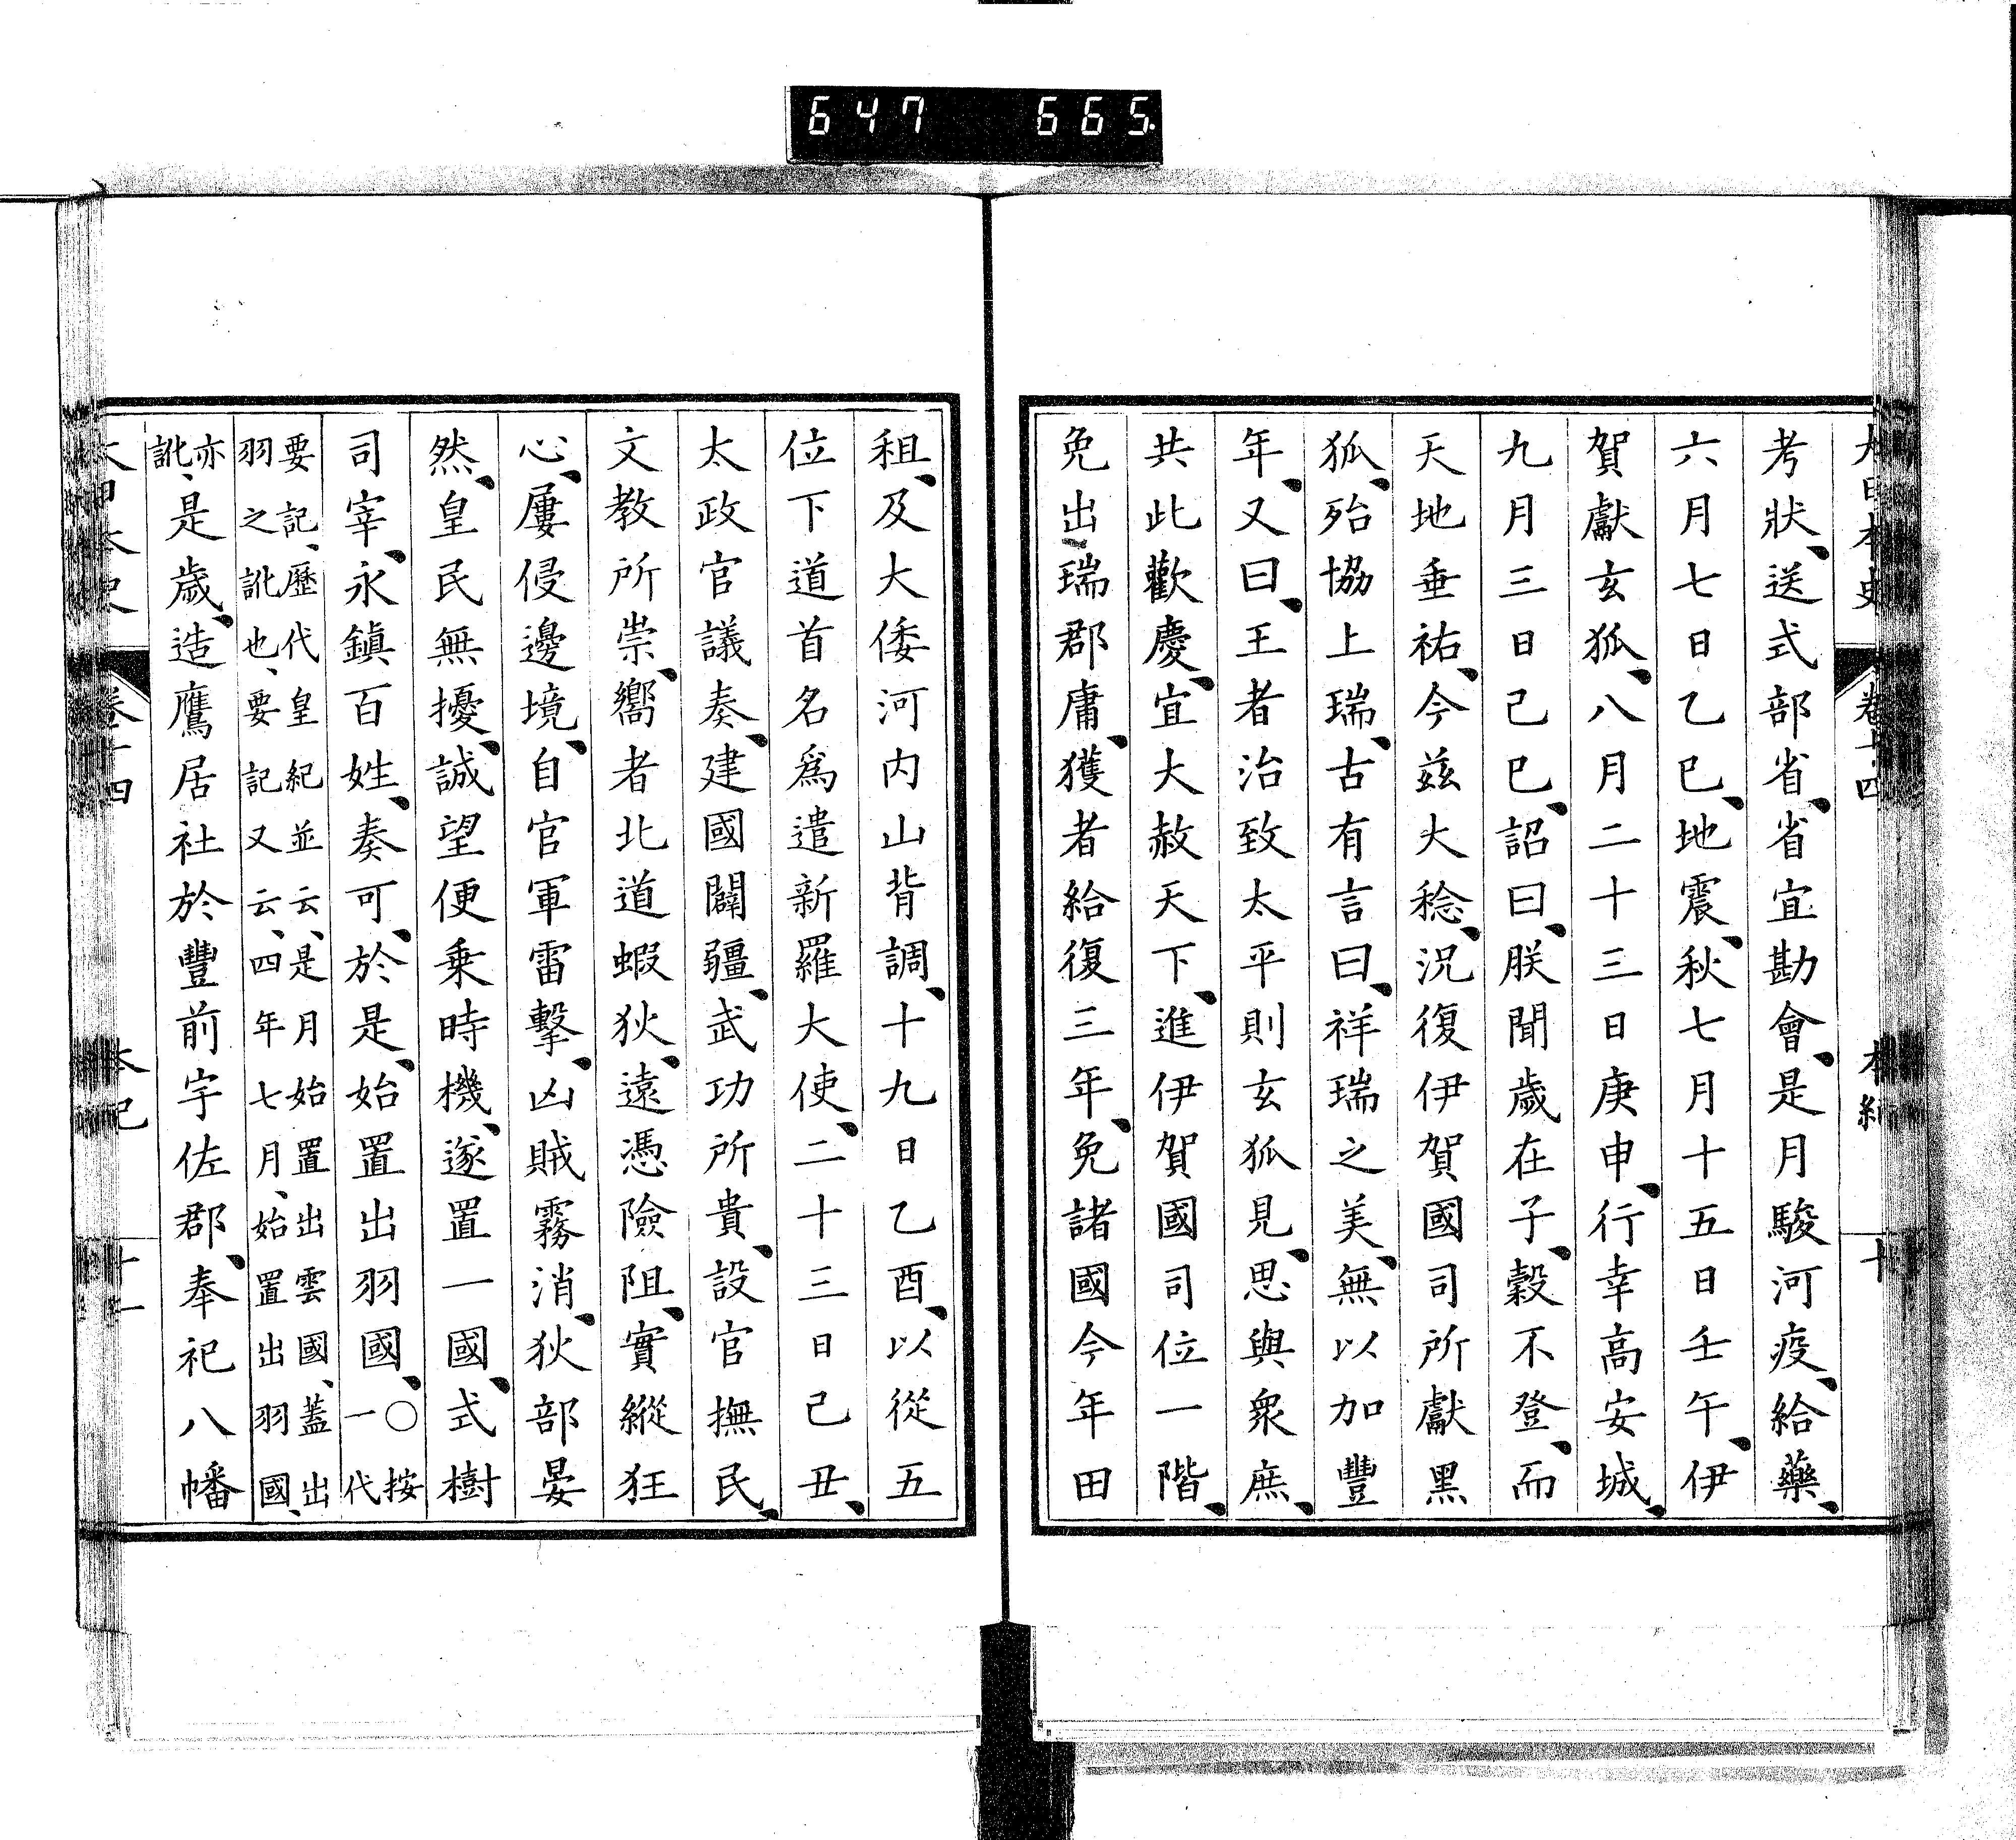 647 665.
大日本史 卷十四 本紀 十
考狀、送式部省、省宜勘會、是月駿河疫、給藥、
六月七日乙巳、地震、秋七月十五日壬午、伊
賀獻玄狐、八月二十三日庚申、行幸高安城、
九月三日己巳、詔曰、朕聞歲在子、穀不登、而
天地垂祐、今茲大稔、況復伊賀國司所獻黑
狐、殆協上瑞、古有言曰、祥瑞之美、無以加豐
年、又曰、王者治致太平則玄狐見、思與衆庶、
共此歡慶、宜大赦天下、進伊賀國司位一階、
免出瑞郡庸、獲者給復三年、免諸國今年田
租、及大倭河内山背調、十九日乙酉、以從五
位下道首名爲遣新羅大使、二十三日己丑、
太政官議奏、建國闢疆、武功所貴、設官撫民、
文教所崇、嚮者北道蝦狄、遠憑險阻、實縱狂
心、屢侵邊境、自官軍雷擊、凶賊霧消、狄部晏
然、皇民無擾、誠望便乘時機、遂置一國、式樹
司宰、永鎭百姓、奏可、於是、始置出羽國、○按一代
要記、歷代皇紀並云、是月始置出雲國、蓋出
羽之訛也、要記又云、四年七月、始置出羽國、
亦訛、是歲、造鷹居社於豐前宇佐郡、奉祀八幡
大日本史 卷十四 本紀 十一